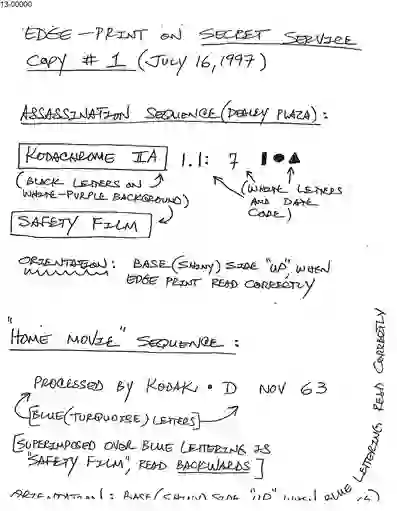 13-00000
EDGE-PRINT ON SECRET SERVICE
COPY # 1 (JULY 16, 1997)
ASSASSINATION SEQUENCE (DEALEY PLAZA):
KODACHROME IIA 1.1: 7 ▌●▲
(BLACK LETTERS ON
WHITE-PURPLE BACKGROUND)
(WHITE LETTERS
AND DATE
CODE)
SAFETY FILM
ORIENTATION: BASE (SHINY) SIDE "UP", WHEN
EDGE PRINT READ CORRECTLY
"HOME MOVIE" SEQUENCE:
PROCESSED BY KODAK • D NOV 63
[BLUE (TURQUOISE) LETTERS]
[SUPERIMPOSED OVER BLUE LETTERING IS
"SAFETY FILM", READ BACKWARDS]
ORIENTATION: BASE (SHINY) SIDE "UP" WHEN BLUE LETTERING READ CORRECTLY